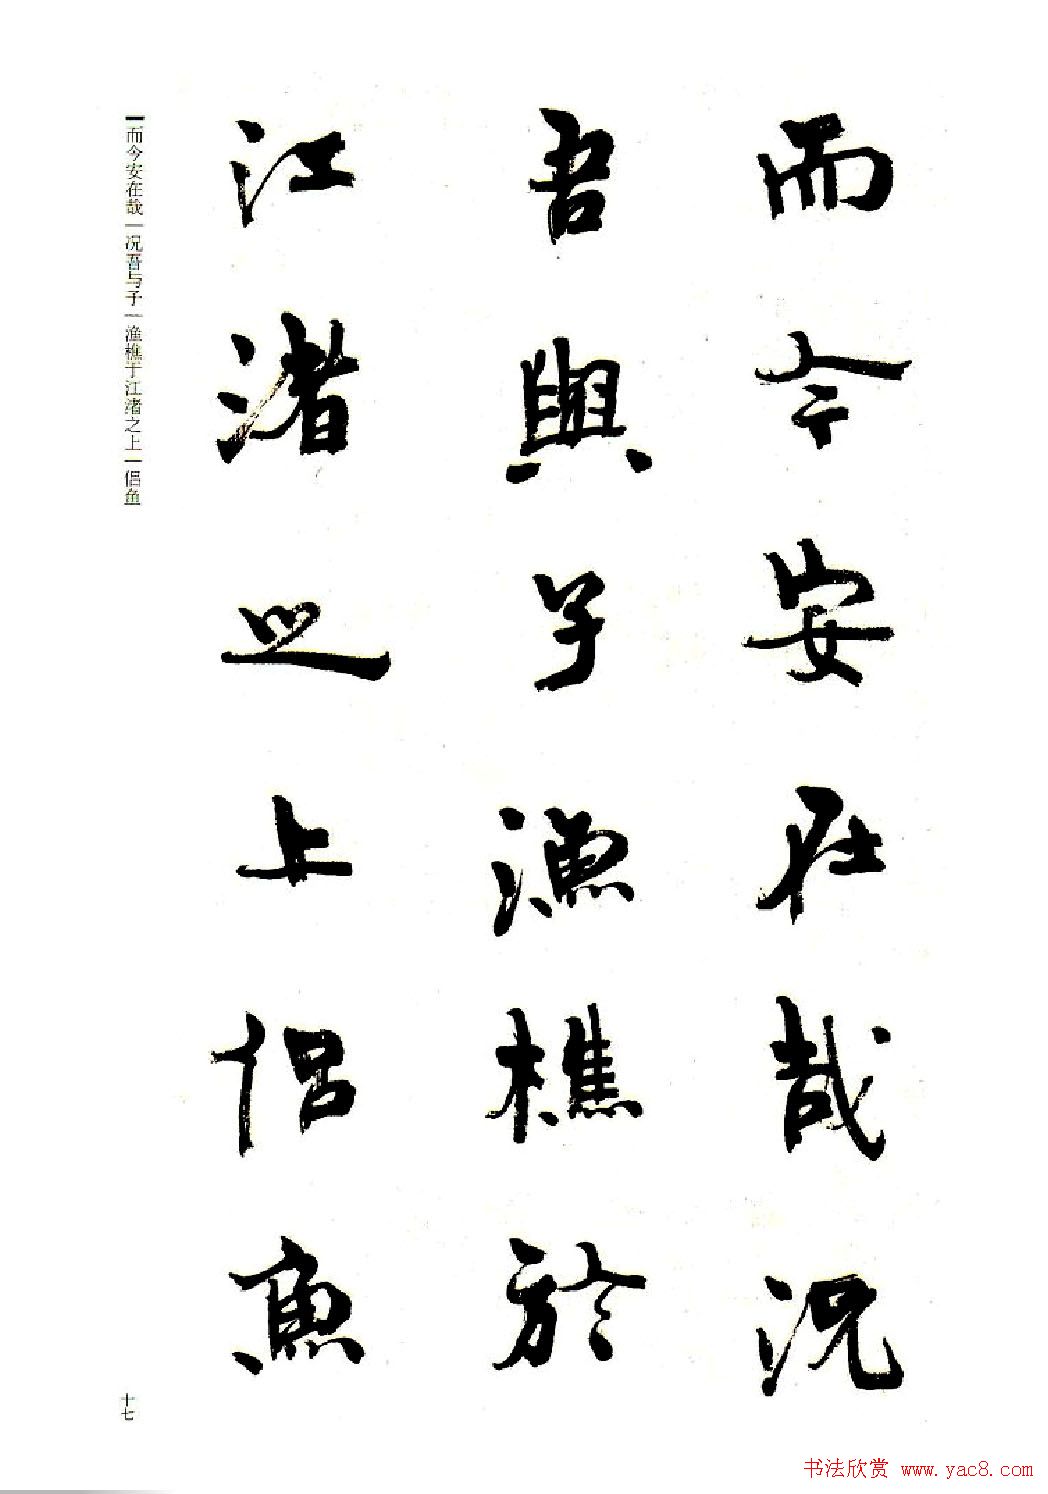 而今安在哉況
吾與子漁樵於
江渚之上侶魚
而今安在哉 况吾与子 渔樵于江渚之上 侣鱼
十七
书法欣赏 www.yac8.com